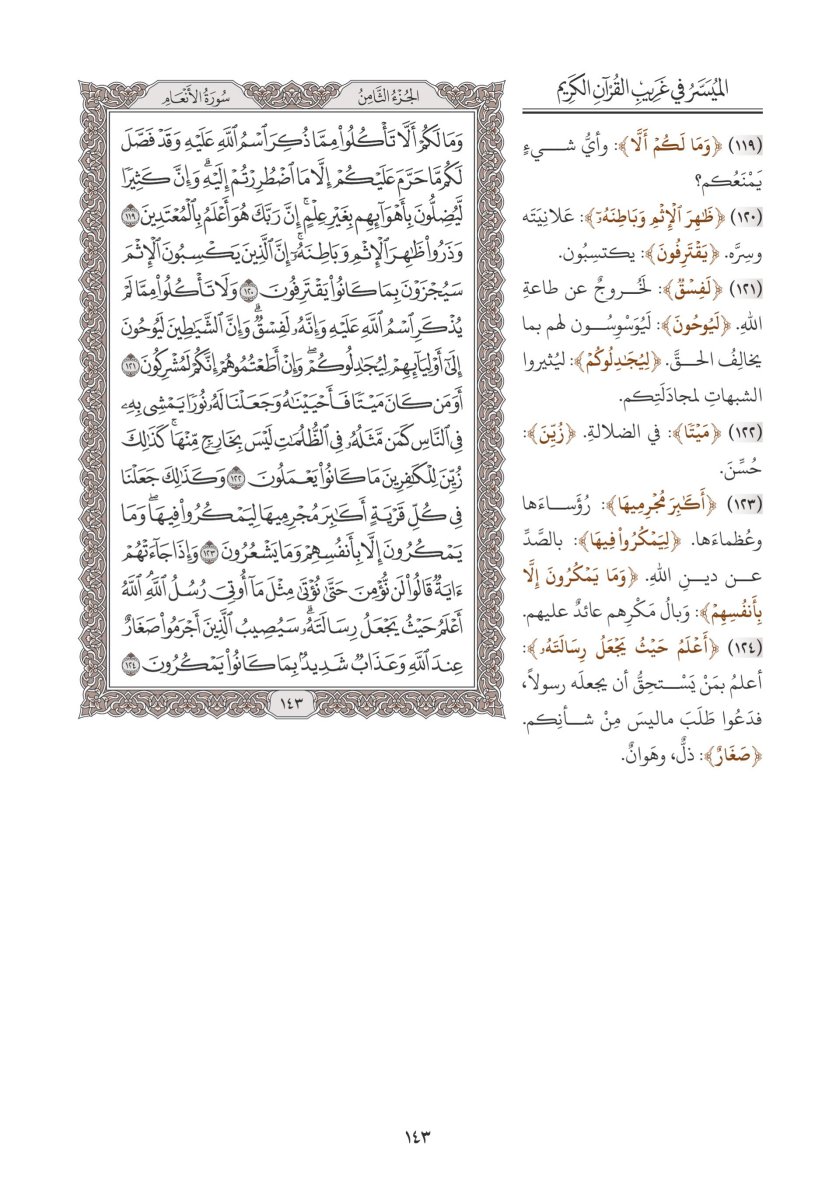 الميسر في غريب القرآن الكريم
(١١٩) ﴿وَمَا لَكُمْ أَلَّا﴾: وأيُّ شيءٍ
يَمْنَعُكم؟
(١٢٠) ﴿ظَٰهِرَ ٱلْإِثْمِ وَبَاطِنَهُۥٓ﴾: عَلانِيَتَه
وسِرَّه. ﴿يَقْتَرِفُونَ﴾: يكتسِبُون.
(١٢١) ﴿لَفِسْقٌ﴾: لَخُروجٌ عن طاعةِ
اللهِ. ﴿لَيُوحُونَ﴾: لَيُوَسْوِسُون لهم بما
يخالِفُ الحقَّ. ﴿لِيُجَٰدِلُوكُمْ﴾: ليُثيروا
الشبهاتِ لمجادَلَتِكم.
(١٢٢) ﴿مَيْتًا﴾: في الضلالةِ. ﴿زُيِّنَ﴾:
حُسِّنَ.
(١٢٣) ﴿أَكَٰبِرَ مُجْرِمِيهَا﴾: رُؤَساءَها
وعُظماءَها. ﴿لِيَمْكُرُوا۟ فِيهَا﴾: بالصَّدِّ
عن دينِ اللهِ. ﴿وَمَا يَمْكُرُونَ إِلَّا
بِأَنفُسِهِمْ﴾: وَبالُ مَكْرِهم عائدٌ عليهم.
(١٢٤) ﴿أَعْلَمُ حَيْثُ يَجْعَلُ رِسَالَتَهُۥ﴾:
أعلمُ بمَنْ يَسْتحِقُّ أن يجعلَه رسولاً،
فدَعُوا طَلَبَ ماليسَ مِنْ شأنِكم.
﴿صَغَارٌ﴾: ذلٌّ، وهَوانٌ.
الجُزْءُ الثَّامِنُ
سُورَةُ الأَنْعَامِ
وَمَا لَكُمْ أَلَّا تَأْكُلُوا۟ مِمَّا ذُكِرَ ٱسْمُ ٱللَّهِ عَلَيْهِ وَقَدْ فَصَّلَ
لَكُم مَّا حَرَّمَ عَلَيْكُمْ إِلَّا مَا ٱضْطُرِرْتُمْ إِلَيْهِ ۗ وَإِنَّ كَثِيرًا
لَّيُضِلُّونَ بِأَهْوَآئِهِم بِغَيْرِ عِلْمٍ ۗ إِنَّ رَبَّكَ هُوَ أَعْلَمُ بِٱلْمُعْتَدِينَ ١١٩
وَذَرُوا۟ ظَٰهِرَ ٱلْإِثْمِ وَبَاطِنَهُۥٓ ۚ إِنَّ ٱلَّذِينَ يَكْسِبُونَ ٱلْإِثْمَ
سَيُجْزَوْنَ بِمَا كَانُوا۟ يَقْتَرِفُونَ ١٢٠ وَلَا تَأْكُلُوا۟ مِمَّا لَمْ
يُذْكَرِ ٱسْمُ ٱللَّهِ عَلَيْهِ وَإِنَّهُۥ لَفِسْقٌ ۗ وَإِنَّ ٱلشَّيَٰطِينَ لَيُوحُونَ
إِلَىٰٓ أَوْلِيَآئِهِمْ لِيُجَٰدِلُوكُمْ ۖ وَإِنْ أَطَعْتُمُوهُمْ إِنَّكُمْ لَمُشْرِكُونَ ١٢١
أَوَمَن كَانَ مَيْتًا فَأَحْيَيْنَٰهُ وَجَعَلْنَا لَهُۥ نُورًا يَمْشِى بِهِۦ
فِى ٱلنَّاسِ كَمَن مَّثَلُهُۥ فِى ٱلظُّلُمَٰتِ لَيْسَ بِخَارِجٍ مِّنْهَا ۚ كَذَٰلِكَ
زُيِّنَ لِلْكَٰفِرِينَ مَا كَانُوا۟ يَعْمَلُونَ ١٢٢ وَكَذَٰلِكَ جَعَلْنَا
فِى كُلِّ قَرْيَةٍ أَكَٰبِرَ مُجْرِمِيهَا لِيَمْكُرُوا۟ فِيهَا ۖ وَمَا
يَمْكُرُونَ إِلَّا بِأَنفُسِهِمْ وَمَا يَشْعُرُونَ ١٢٣ وَإِذَا جَآءَتْهُمْ
ءَايَةٌ قَالُوا۟ لَن نُّؤْمِنَ حَتَّىٰ نُؤْتَىٰ مِثْلَ مَآ أُوتِىَ رُسُلُ ٱللَّهِ ۘ ٱللَّهُ
أَعْلَمُ حَيْثُ يَجْعَلُ رِسَالَتَهُۥ ۗ سَيُصِيبُ ٱلَّذِينَ أَجْرَمُوا۟ صَغَارٌ
عِندَ ٱللَّهِ وَعَذَابٌ شَدِيدٌۢ بِمَا كَانُوا۟ يَمْكُرُونَ ١٢٤
١٤٣
١٤٣